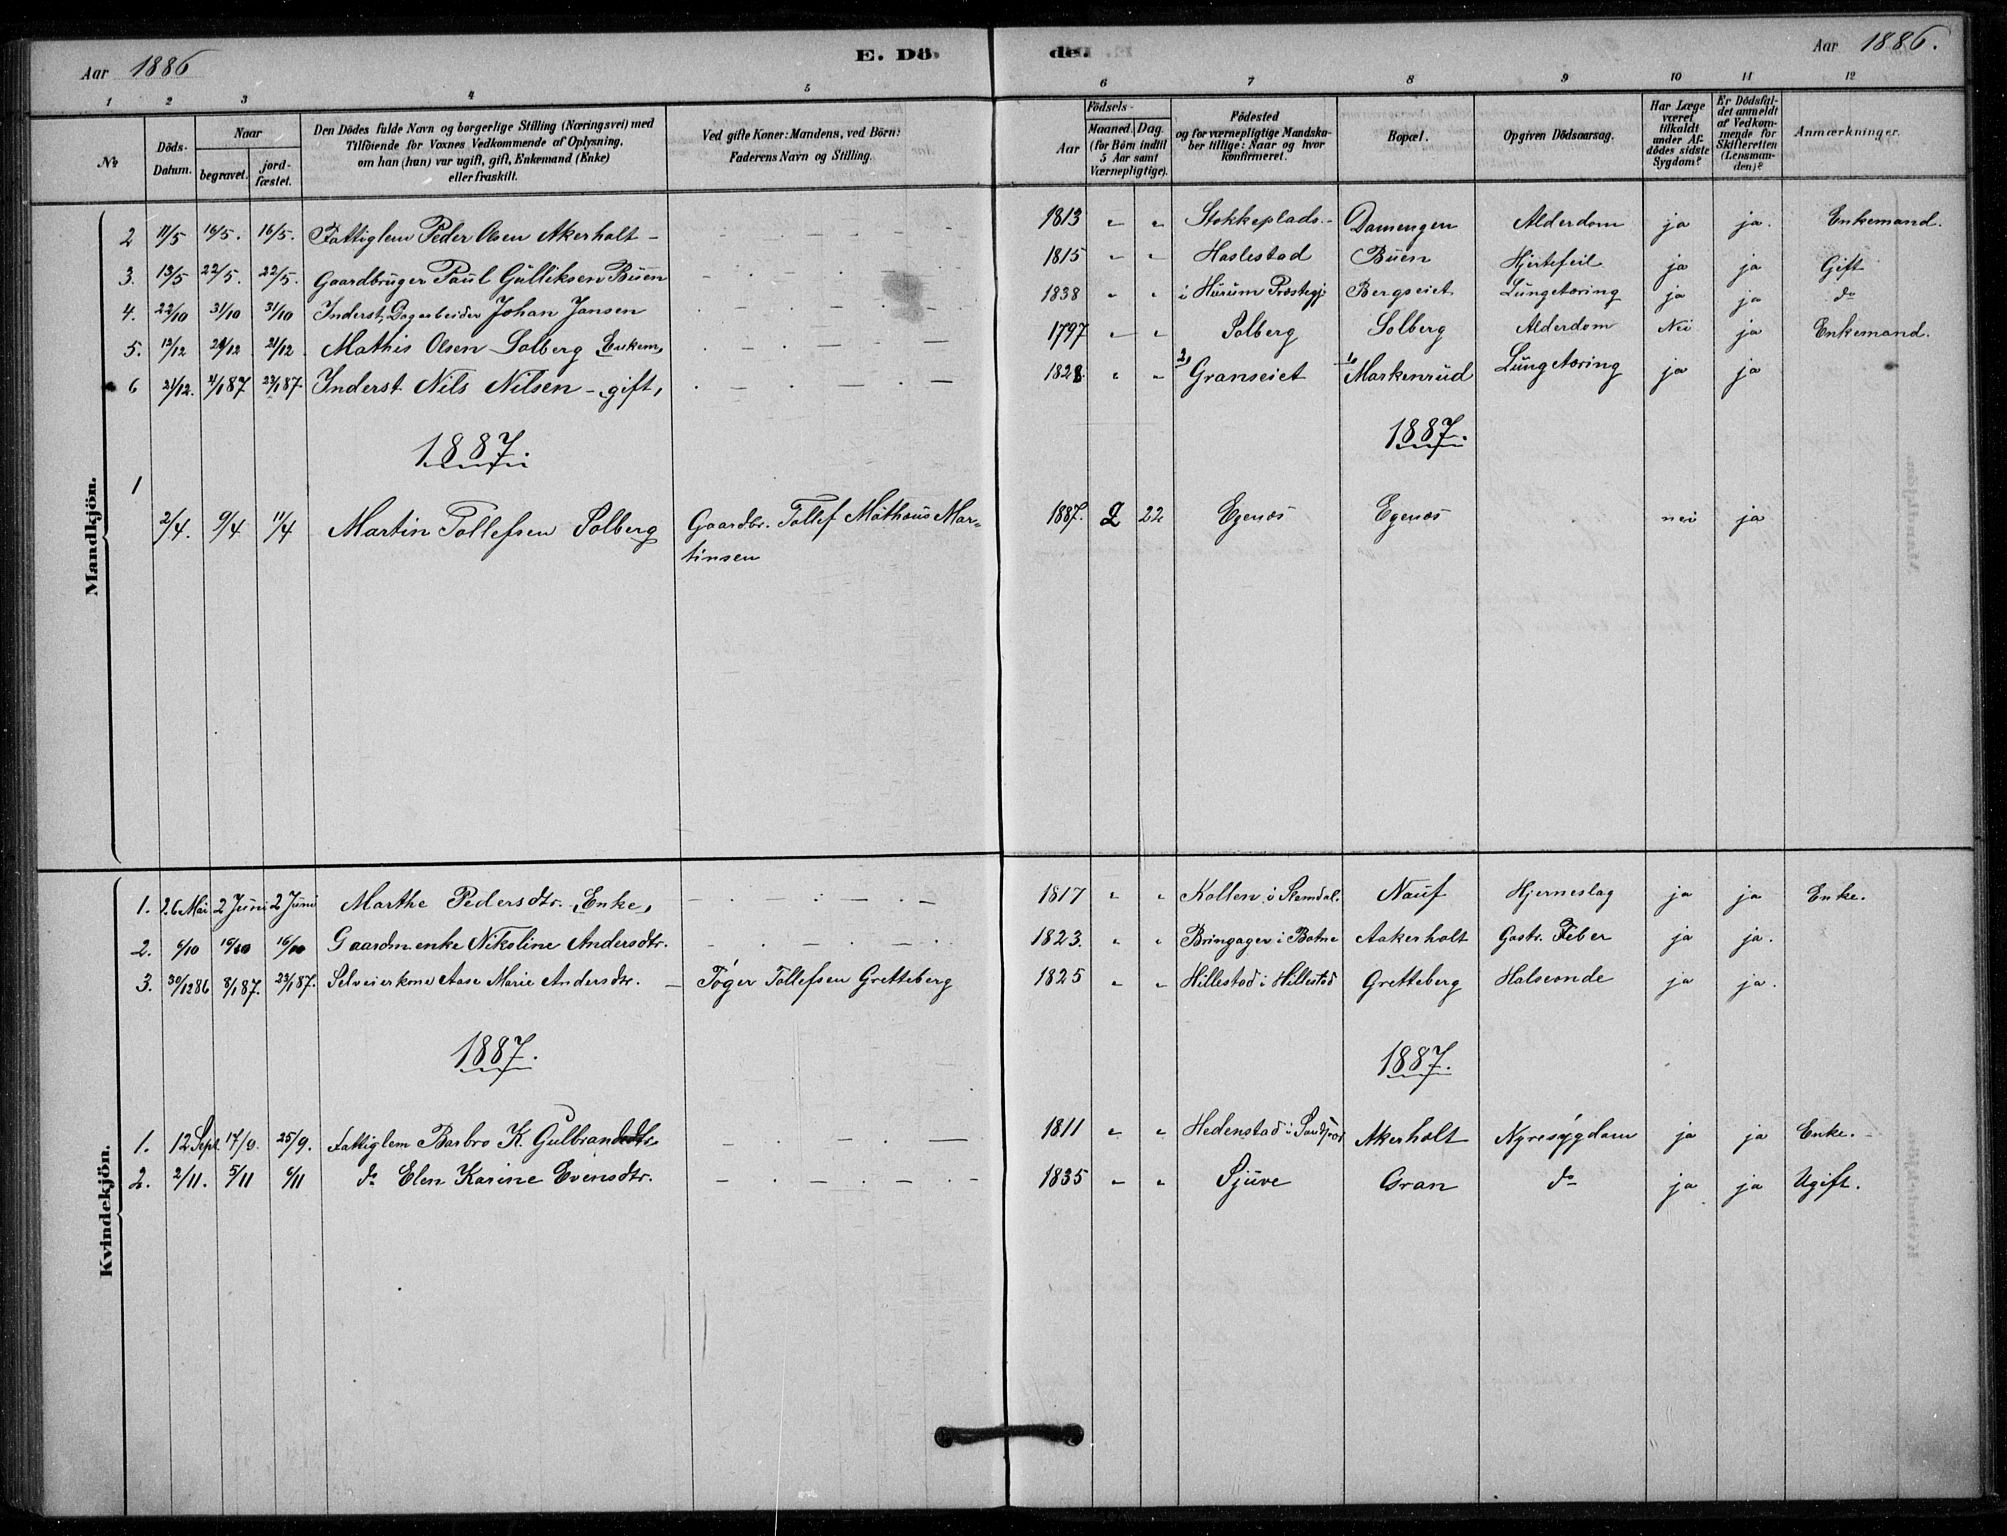 Aar 1886 E. Dö de. Aar 1886.
1 2 3 4 5 6 7 8 9 10 11 12
No
Döds-Datum.
Naar
begravet. jord-fæstet.
Den Dödes fulde Navn og borgerlige Stilling (Næringsvei) med
Tilföiende for Voxnes Vedkommende af Oplysning,
om han (hun) var ugift, gift, Enkemand (Enke)
eller fraskilt.
Ved gifte Koner: Mandens, ved Börn:
Faderens Navn og Stilling.
Födsels-
Aar
Maaned. Dag.
(for Börn indtil
5 Aar samt
Værnepligtige).
Födested
og for værnepligtige Mandska-
ber tillige: Naar og hvor
konfirmeret.
Bopæl.
Opgiven Dödsaarsag.
Har Læge
været
tilkaldt
under Af-
dödes sidste
Sygdom?
Er Dödsfal-
det anmeldt
af Vedkom-
mende for
Skifteretten
(Lensman-
den)?
Anmærkninger.
Mandkjön.
2 11/5 16/5. 16/5. Fattiglem Peder Olsen Akerholt - 1813 " " Stokkeplads- Damengen Alderdom ja ja. Enkemand.
3. 13/5 22/5. 22/5. Gaardbruger Paul Gulliksen Buen 1815 " " Haslestad Buen Hjertefeil ja ja Gift
4. 22/10 31/10 31/10 Inderst, Dagarbeider Johan Jansen 1838 " " i Hurum Præstegj. Bergseiet Lungetæring ja ja do
5. 12/12 21/12 21/12. Mathis Olsen Solberg Enkem, 1797 " " Solberg Solberg Alderdom Nei ja Enkemand.
6 21/12. 4/1 87 23/1 87. Inderst Nils Nilsen - gift, 1828. " " 2, Granseiet 1, Markenrud Lungetæring ja ja
1887. 1887.
1
2/4. 9/4 11/4 Martin Tollefsen Solberg Gaardbr. Tollef Mathæus Mar- 1887. 2 22 Egenæs Egenæs nei ja
tinsen
Kvindekjön.
1. 26 Mai 2 Juni 2 Juni Marthe Pedersdtr. Enke, 1817 " " Kollen i Slemdal. Nauf Hjerneslag ja ja Enke.
2. 6/10 16/10 16/10 Gaardm.enke Nikoline Andersdtr. 1823. " " Bringager i Botne Aakerholt Gastr. Feber ja ja.
3. 30/12 86 8/1 87. 23/1 87. Selveierkone Aase Marie Andersdtr. - Töger Tollefsen Gretteberg 1825 " " Hillestad i Hillestad Gretteberg Halsonde ja ja.
1887. 1887.
1. 12 Sept 17/9. 25/9. Fattiglem Barbro K. Gulbrandsdtr. 1811 " " Hedenstad i Akerholt Nyresygdom ja ja Enke.
2. 2/11. 5/11 6/11 do Elen Karine Evensdtr. 1835 " " Sjuve Gran do ja ja Ugift.